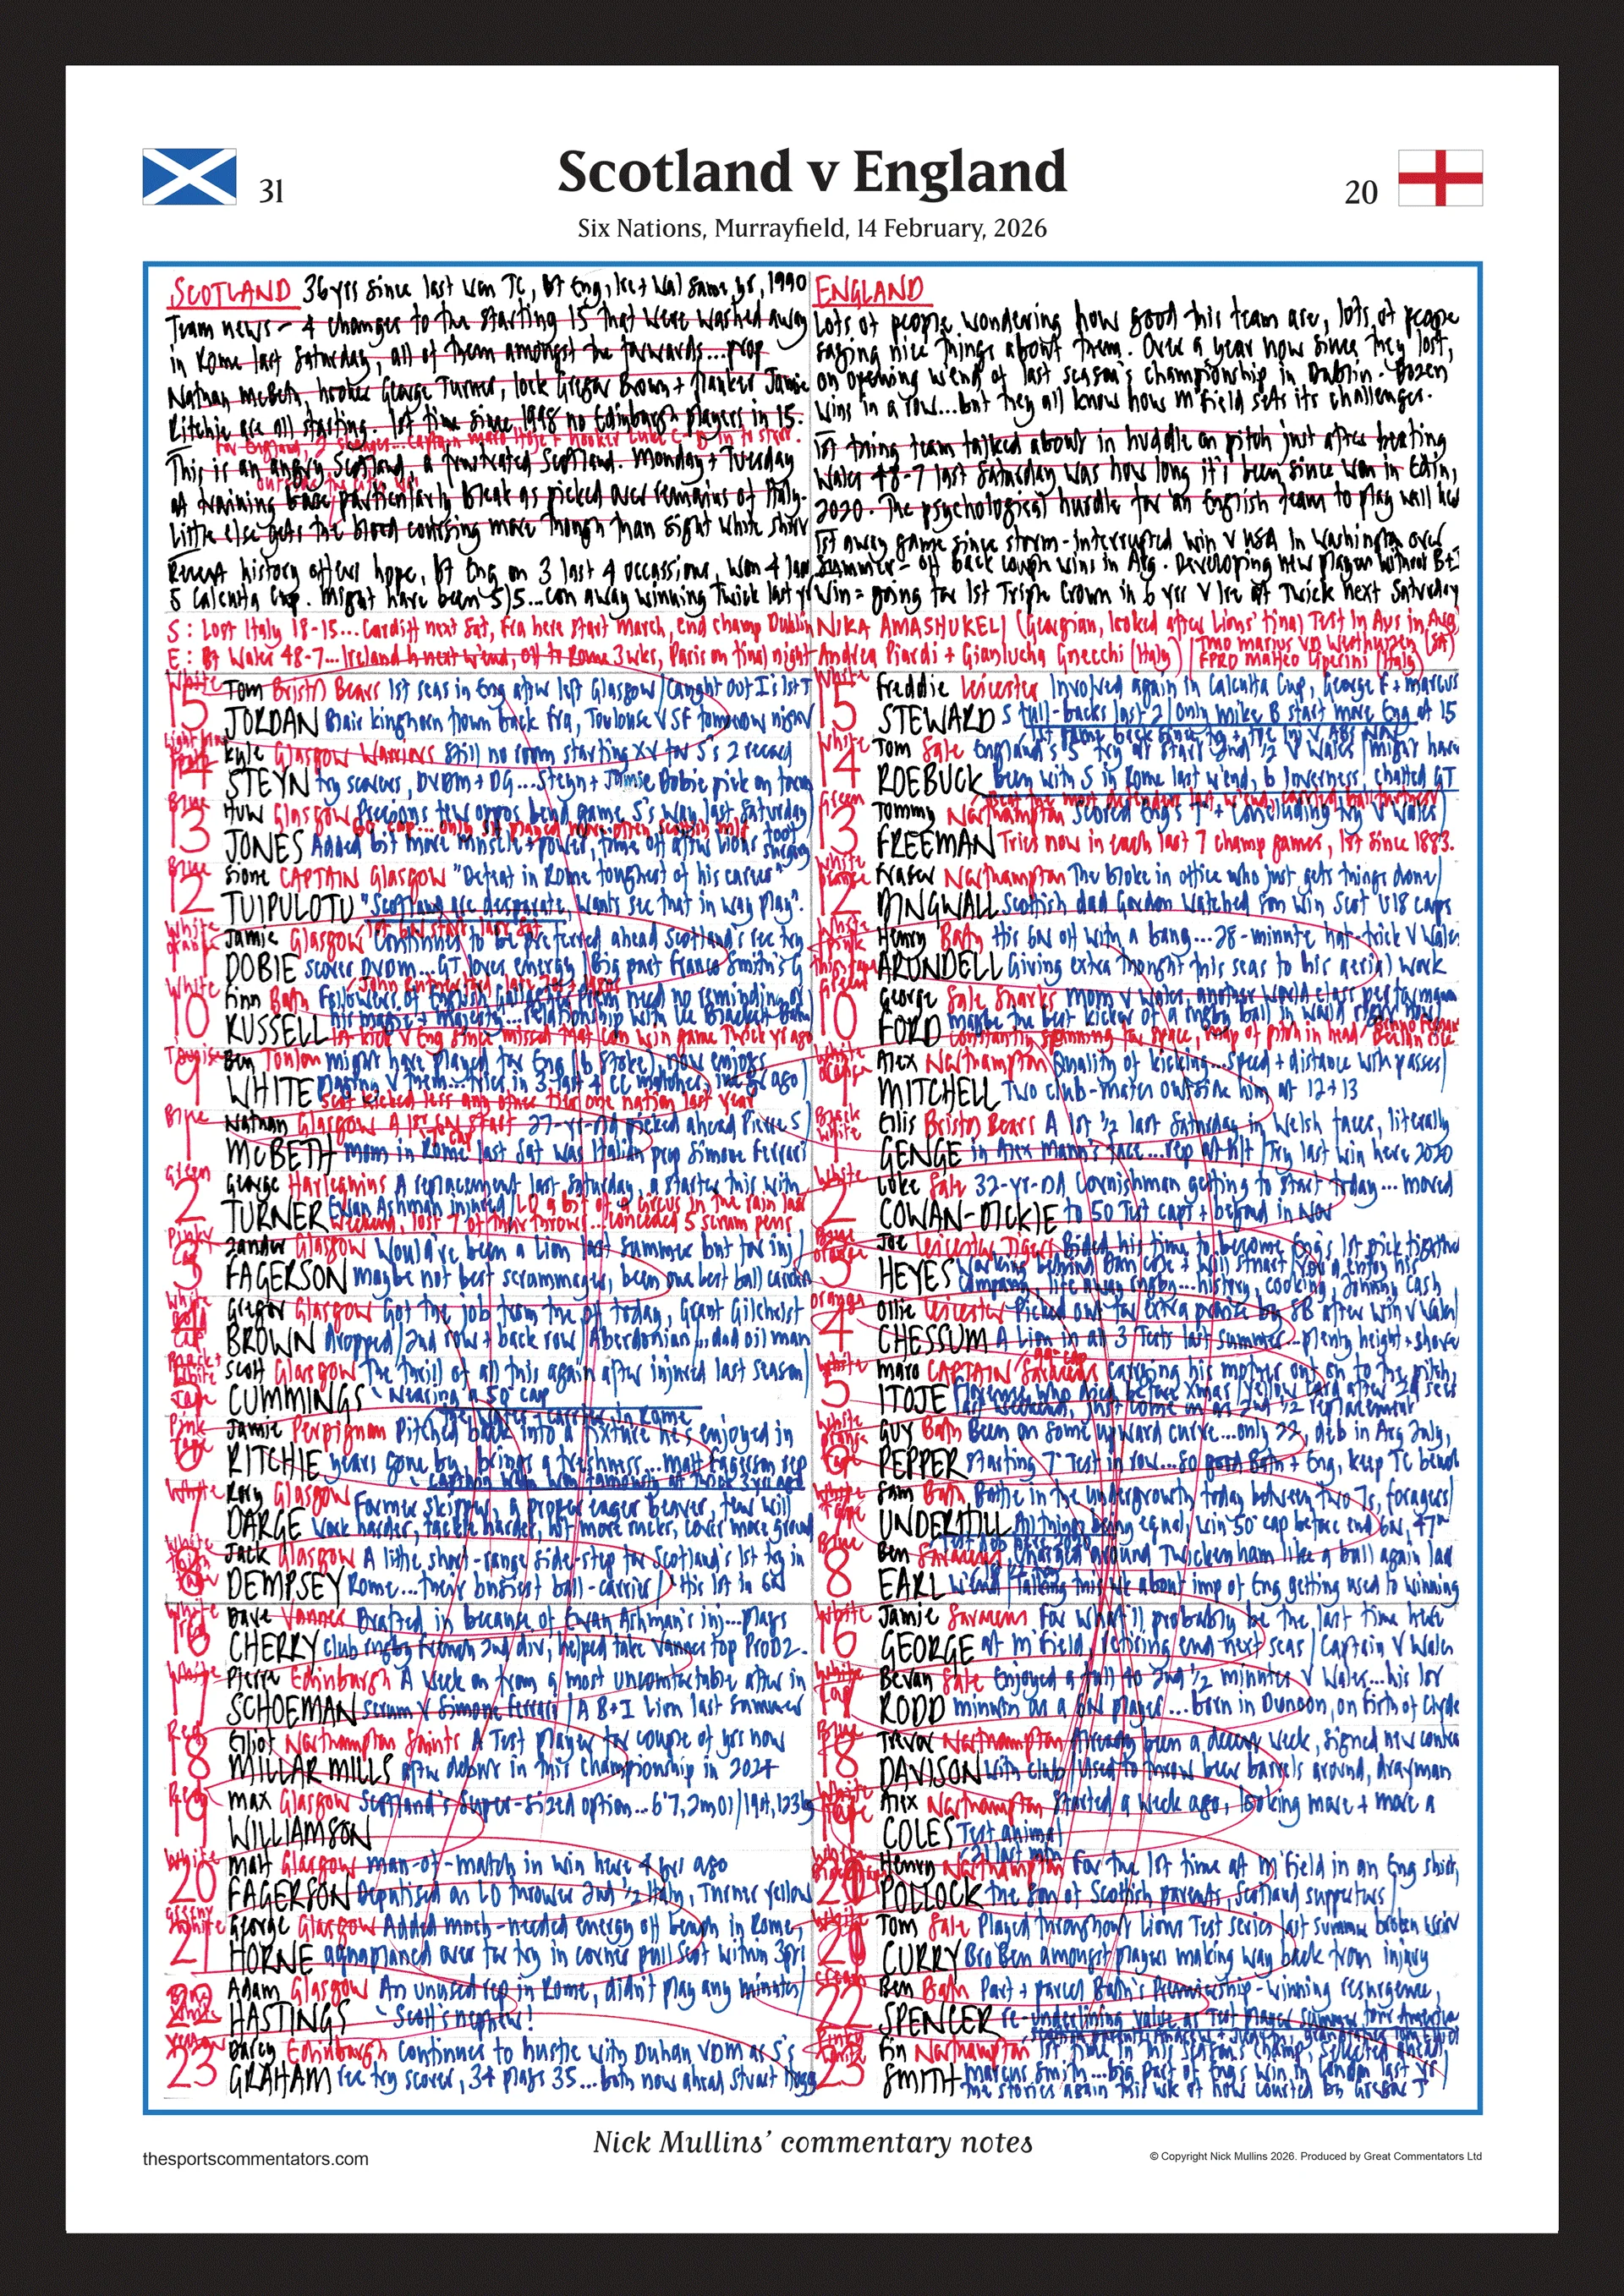 Scotland v England
31
20
Six Nations, Murrayfield, 14 February, 2026
SCOTLAND 36yrs since last won TC, Bt Eng, Ire + Wal same yr, 1990
Team news - 4 changes to the starting 15 that were washed away
in Rome last Saturday, all of them amongst the forwards...prop
Nathan McBeth, hooker George Turner, lock Gregor Brown + flanker Jamie
Ritchie are all starting. 1st time since 1998 no Edinburgh players in 15.
For England, 2 changes...captain Maro Itoje + hooker Luke C-D in to start.
This is an angry Scotland, a frustrated Scotland. Monday + Tuesday
outside the city
at training base particularly bleak as picked over remains of Italy.
Little else gets the blood coursing more though than eight white shirts
Recent history offers hope, Bt Eng on 3 last 4 occassions, won 4 last
5 Calcutta Cup. Might have been 5/5...con away winning Twick last yr
S: Lost Italy 18-15...Cardiff next Sat, Fra here start March, end champ Dublin
E: Bt Wales 48-7...Ireland h next w'end, off to Rome 3wks, Paris on final night
ENGLAND
Lots of people wondering how good this team are, lots of people
saying nice things about them. Over a year now since they lost,
on opening w'end of last season's championship in Dublin. Dozen
wins in a row...but they all know how M'field sets its challenges.
1st thing team talked about in huddle on pitch just after beating
Wales 48-7 last Saturday was how long it's been since won in Edin,
2020. The psychological hurdle for an English team to play well here
1st away game since storm-interrupted win v USA in Washington over
summer - off back couple wins in Arg. Developing new players without B+I
Win = going for 1st Triple Crown in 6 yrs v Ire at Twick next Saturday
NIKA AMASHUKELI (Georgian, looked after Lions' final Test in Aus in Aug)
Andrea Piardi + Gianluca Gnecchi (Italy) TMO Marius VD Westhuizen (SA)
FPRO Matteo Liperini (Italy)
White
15 Tom Bristol Bears 1st seas in Eng after left Glasgow
JORDAN Blair Kinghorn down back Fra, Toulouse v SF tomorrow night
14 Kyle Glasgow Warriors Still no room starting XV for S's 2 record
STEYN try scorers, DVDM + DG...Steyn + Jamie Dobie pick on form
Blue
13 Huw Glasgow
JONES Added bit more muscle + power, time off after Lions foot surgery
Blue
12 Sione CAPTAIN Glasgow "Defeat in Rome toughest of his career"
TUIPULOTU "Scotland are desperate, wants see that in way play".
White orange
Jamie Glasgow Continues to be preferred ahead Scotland's rec try
DOBIE scorer DVDM...GT loves energy Big part Franco Smith's G
White
10 Finn Bath Followers of English club rugby need no reminding of
RUSSELL his magic + majesty...relationship with
9 Ben Toulon might have played for Eng (b Stoke), now enjoys
WHITE playing v them...tries in 3 last 4 CC matches, inc yr ago
Scot kicked less any other tier one nation last year
Blue
1 Nathan Glasgow A 1st 6N start 27-yr-old picked ahead Pierre S
McBETH mom in Rome last Sat was Italian prop Simone Ferrari
Green
2 George Harlequins A replacement last Saturday, a starter this with
TURNER Ewan Ashman injured LO a bit of a circus in the rain last
weekend, lost 7 of their throws...conceded 5 scrum pens
Pinky
3 Zander Glasgow Would've been a Lion last summer but for inj
FAGERSON maybe not best scrummager, been one best ball carriers
4 Gregor Glasgow Got the job from the off today, Grant Gilchrist
BROWN dropped/2nd row + back row Aberdonian...dad oil man
5 Scott Glasgow The thrill of all this again after injured last season
CUMMINGS Nearing a 50th cap
Pink Tape
6 Jamie Perpignan Pitched back into a fixture he's enjoyed in
RITCHIE years gone by, brings a freshness...Matt Fagerson rep
White
7 Rory Glasgow Former skipper, a proper eager beaver, few will
DARGE work harder, tackle harder, hit more rucks, cover more ground
8 Jack Glasgow A lithe short-range side-step for Scotland's 1st try in
DEMPSEY Rome...their busiest ball-carrier/His 1st in 6N
16 Dave Vannes Drafted in because of Ewan Ashman's inj...plays
CHERRY club rugby French 2nd div, helped take Vannes top ProD2.
White
17 Pierre Edinburgh A week on from a most uncomfortable after in
SCHOEMAN scrum v Simone Ferrari/A B+I Lion last summer
Red
18 Elliot Northampton Saints A Test player for couple of yrs now
MILLAR MILLS after debut in this championship in 2024
Red
19 Max Glasgow Scotland's super-sized option...6'7, 2m01/19st, 123kg
WILLIAMSON
White
20 Matt Glasgow man-of-match in win here 4 yrs ago
FAGERSON Deputised as LO thrower 2nd ½ Italy, Turner yellow
21 George Glasgow Added much-needed energy off bench in Rome,
HORNE aquaplaned over for try in corner pull Scot within 3pts
22 Adam Glasgow An unused rep in Rome, didn't play any minutes
HASTINGS Scott's nephew!
Yellow
23 Darcy Edinburgh continues to hustle with Duhan VDM as S's
GRAHAM rec try scorer, 34 plays 35...both now ahead Stuart Hogg
White
15 Freddie Leicester Involved again in Calcutta Cup, George F + Marcus
STEWARD S full-backs last 2/Only Mike B start more Eng at 15
White
14 Tom Sale England's 5th try at start 2nd ½ v Wales/might have
ROEBUCK been with S in Rome last w'end, b Inverness, chatted GT
Green
13 Tommy Northampton Scored Eng's 7th + concluding try v Wales
FREEMAN Tries now in each last 7 champ games, 1st since 1883.
12 Fraser Northampton The bloke in office who just gets things done
DINGWALL Scottish dad Gordon watched son win Scot U18 caps
Henry Bath His 6N off with a bang...28-minute hat-trick v Wales
ARUNDELL Giving extra thought this seas to his aerial work
10 George Sale Sharks mom v Wales, another world class performance
FORD maybe the best kicker of a rugby ball in world rugby
constantly scanning for space, map of pitch in head
9 Alex Northampton Quality of kicking...speed + distance with passes
MITCHELL Two club-mates outside him at 12+13
Black White
1 Ellis Bristol Bears A 1st ½ last Saturday in Welsh faces, literally
GENGE in Alex Mann's face...rep at h/t/Try last win here 2020
White
2 Luke Sale 32-yr-old Cornishman getting to start today...moved
COWAN-DICKIE to 50 Test caps + beyond in Nov
3 Joe Leicester Tigers Bided his time to become Eng's 1st pick tighthead
HEYES working behind Dan Cole + Will Stuart/You'd enjoy his
company, life away rugby...history, cooking, Johnny Cash
orange
4 Ollie Leicester Picked out for extra praise by SB after win v Wales
CHESSUM A Lion in all 3 Tests last summer...plenty height + shove
White
5 Maro CAPTAIN Saracens Carrying his mother on to the pitch,
ITOJE Florence who died before Xmas
last weekend, just come on as 2nd ½ replacement
6 Guy Bath Been on some upward curve...only 22, deb in Arg July,
PEPPER starting 7th Test in row...so good Bath + Eng, keep TC bench
7 Sam Bath Battle in the undergrowth today between two 7s, foragers
UNDERHILL All things being equal, win 50th cap before end 6N, 47th
Blue
8 Ben Saracens Charged around Twickenham like a ball again last
EARL w'end Talking this wk about imp of Eng getting used to winning
White
16 Jamie Saracens For what'll probably be the last time here
GEORGE at M'field, retiring end next seas/Captain v Wales
17 Bevan Sale Enjoyed a full 40 2nd ½ minutes v Wales...his 1st
RODD minutes as a 6N player...born in Dunoon, on Firth of Clyde
Blue
18 Trevor Northampton Already been a decent week, signed new contract
DAVISON with club/Used to throw beer barrels around, drayman
19 Alex Northampton Started a week ago, looking more + more a
COLES Test animal
20 Henry Northampton For the 1st time at M'field in an Eng shirt,
POLLOCK the son of Scottish parents, Scotland supporters
Tom Sale Played throughout Lions Test series last summer broken wrist
CURRY Bro Ben amongst players making way back from injury
22 Ben Bath Part + parcel Bath's Premiership-winning resurgence,
SPENCER re-underlining value as Test player summer tour America
23 Fin Northampton 1st time in this season's champ, selected ahead
SMITH Marcus Smith...big part of Eng's win in London last yr
the stories again this wk of how courted by Gregor T
Nick Mullins' commentary notes
thesportscommentators.com
© Copyright Nick Mullins 2026. Produced by Great Commentators Ltd